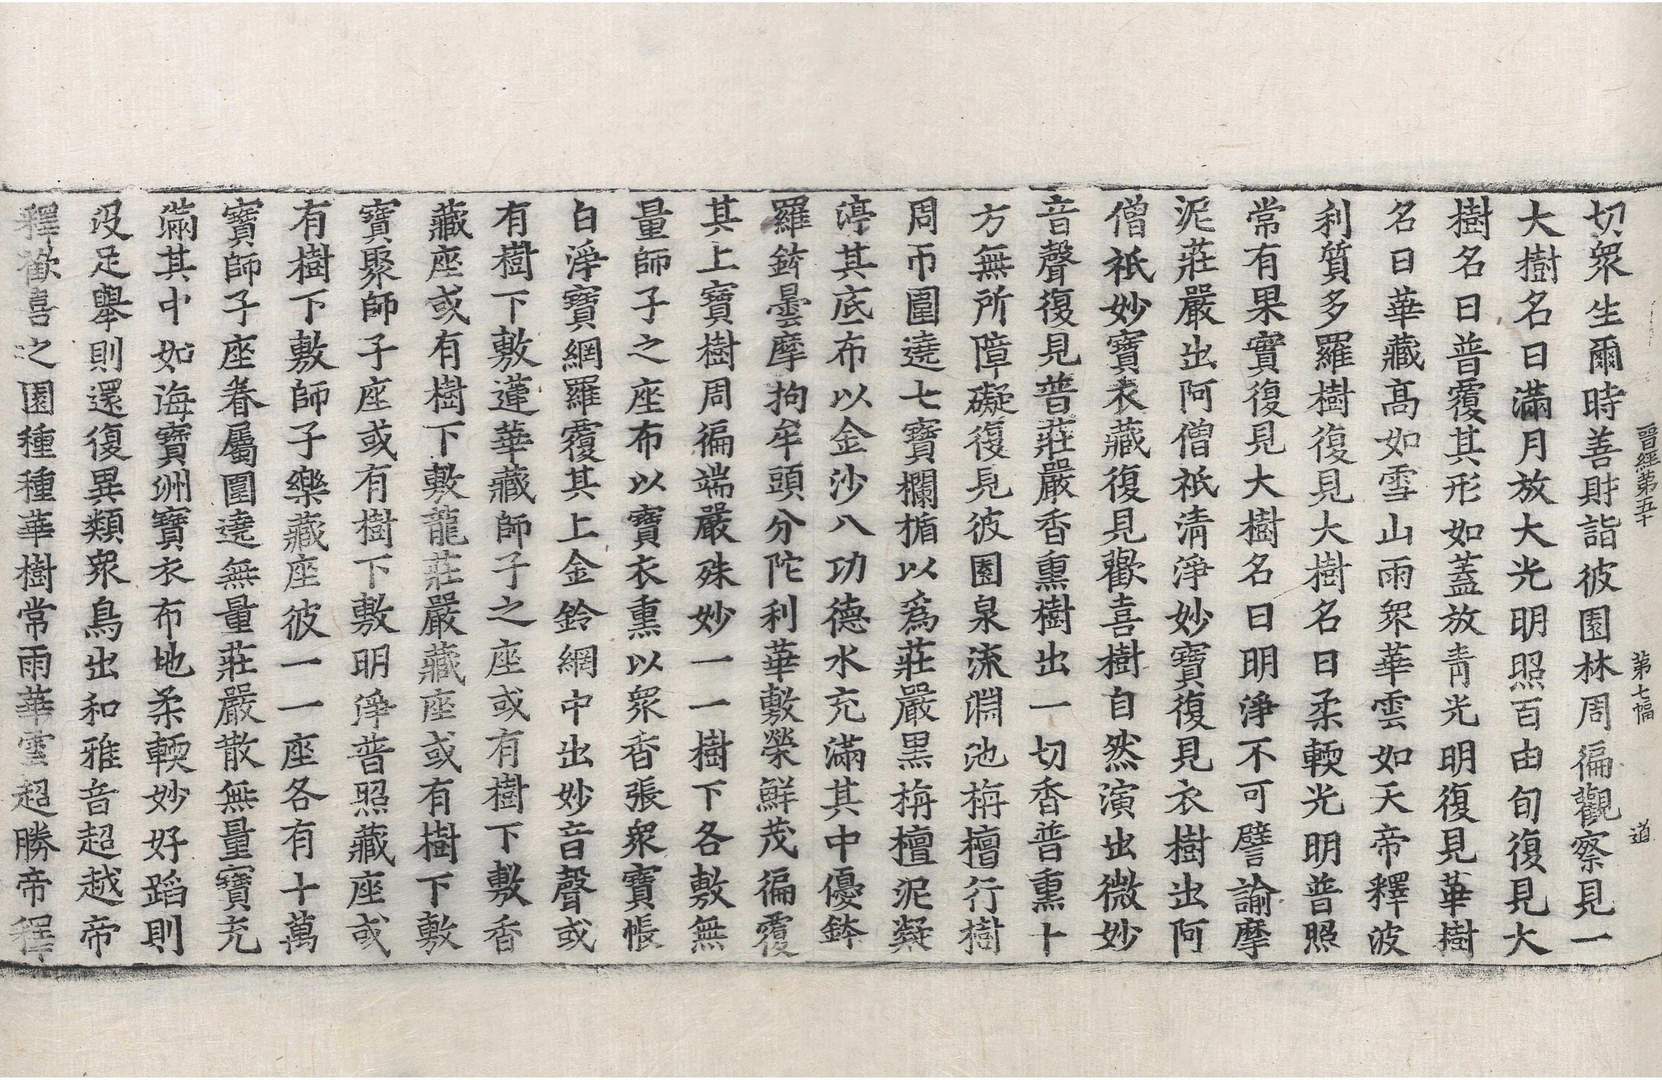 晉經第五十　第七幅　道
切衆生爾時善財詣彼園林周徧觀察見一
大樹名曰滿月放大光明照百由旬復見大
樹名曰普覆其形如蓋放青光明復見華樹
名曰華藏高如雪山雨衆華雲如天帝釋波
利質多羅樹復見大樹名曰柔輭光明普照
常有果實復見大樹名曰明淨不可譬諭摩
泥莊嚴出阿僧祇清淨妙寶復見衣樹出阿
僧祇妙寶衣藏復見歡喜樹自然演出微妙
音聲復見普莊嚴香熏樹出一切香普熏十
方無所障礙復見彼園泉流淵池栴檀行樹
周帀圍遶七寶欄楯以爲莊嚴黑栴檀泥凝
渟其底布以金沙八功德水充滿其中優鉢
羅鉢曇摩拘牟頭分陀利華敷榮鮮茂徧覆
其上寶樹周徧端嚴殊妙一一樹下各敷無
量師子之座布以寶衣熏以衆香張衆寶帳
白淨寶網羅覆其上金鈴網中出妙音聲或
有樹下敷蓮華藏師子之座或有樹下敷香
藏座或有樹下敷龍莊嚴藏座或有樹下敷
寶聚師子座或有樹下敷明淨普照藏座或
有樹下敷師子樂藏座彼一一座各有十萬
寶師子座眷屬圍遶無量莊嚴散無量寶充
滿其中如海寶洲寶衣布地柔輭妙好蹈則
沒足舉則還復異類衆鳥出和雅音超越帝
釋歡喜之園種種華樹常雨華雲超勝帝釋